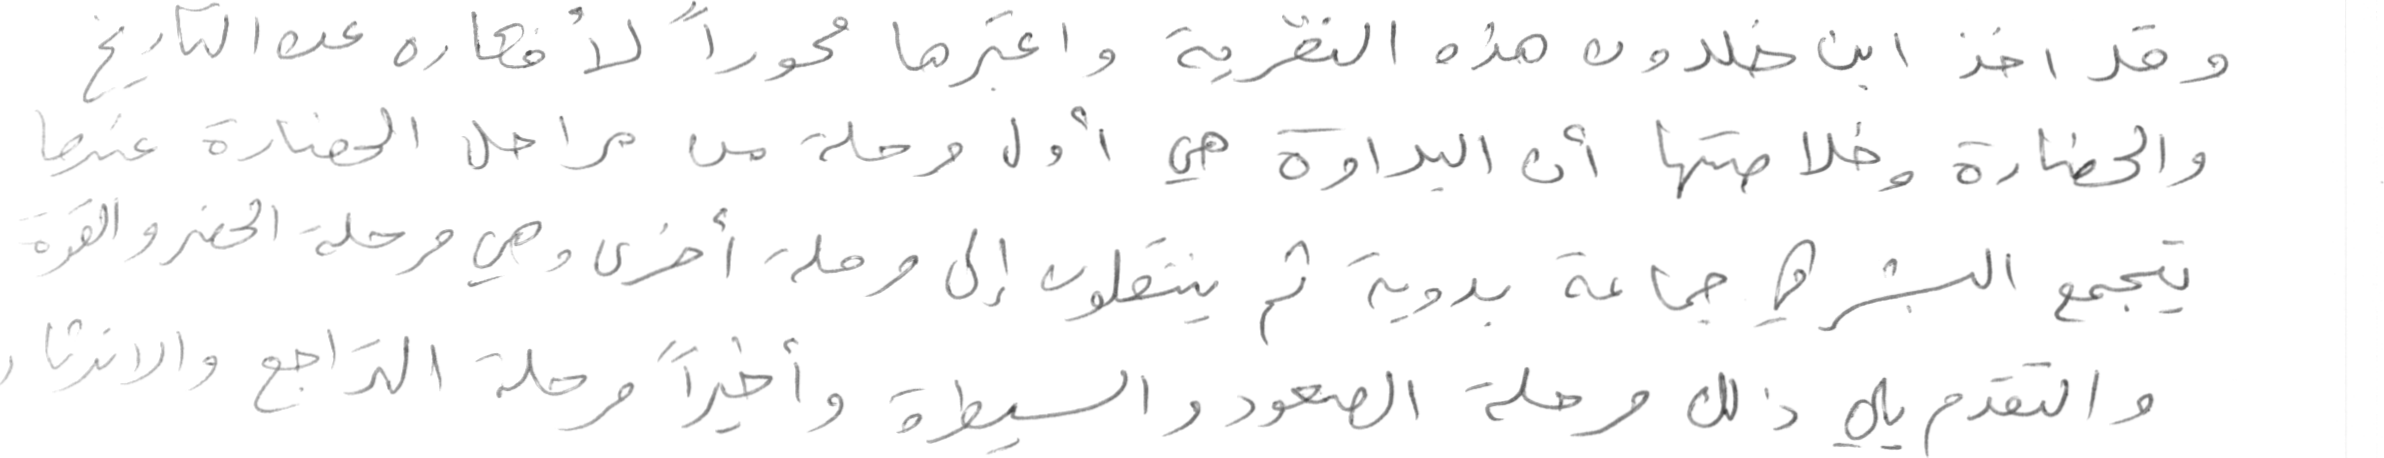 وقد اخذ ابن خلدون هذه النظرية واعتبرها محوراً لأفكاره عن التاريخ
والحضارة وخلاصتها أن البداوة هي أول مرحلة من مراحل الحضارة عندما
يتجمع البشر في جماعة بدوية ثم ينتقلون إلى مرحلة أخرى وهي مرحلة الحضر والقوة
والتقدم يلي ذلك مرحلة الصعود والسيطرة وأخيراً مرحلة التراجع والاندثار